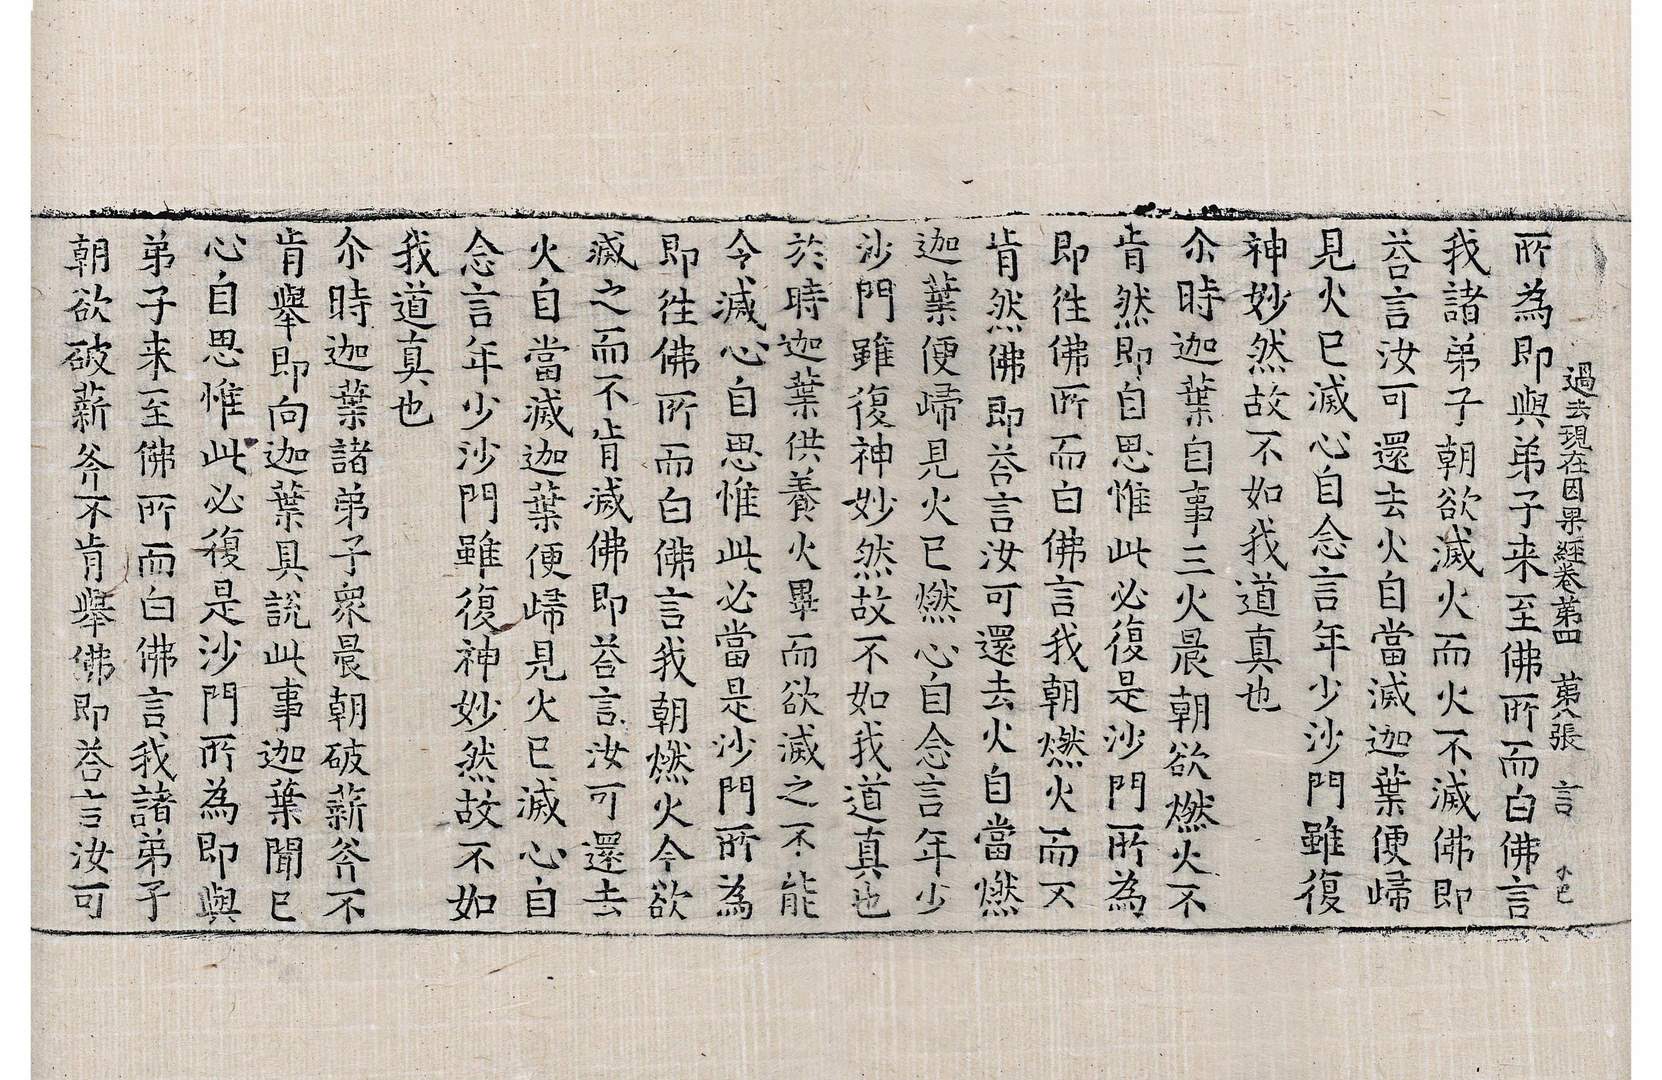 過去現在因果經卷第四　第八張　言
所為即與弟子来至佛所而白佛言
我諸弟子朝欲滅火而火不滅佛即
荅言汝可還去火自當滅迦葉便歸
見火已滅心自念言年少沙門雖復
神妙然故不如我道真也
尒時迦葉自事三火晨朝欲燃火不
肯然即自思惟此必復是沙門所為
即往佛所而白佛言我朝燃火而不
肯然佛即荅言汝可還去火自當燃
迦葉便歸見火已燃心自念言年少
沙門雖復神妙然故不如我道真也
於時迦葉供養火畢而欲滅之不能
令滅心自思惟此必當是沙門所為
即往佛所而白佛言我朝燃火今欲
滅之而不肯滅佛即荅言汝可還去
火自當滅迦葉便歸見火已滅心自
念言年少沙門雖復神妙然故不如
我道真也
尒時迦葉諸弟子衆晨朝破薪斧不
肯舉即向迦葉具說此事迦葉聞已
心自思惟此必復是沙門所為即與
弟子来至佛所而白佛言我諸弟子
朝欲破薪斧不肯舉佛即荅言汝可